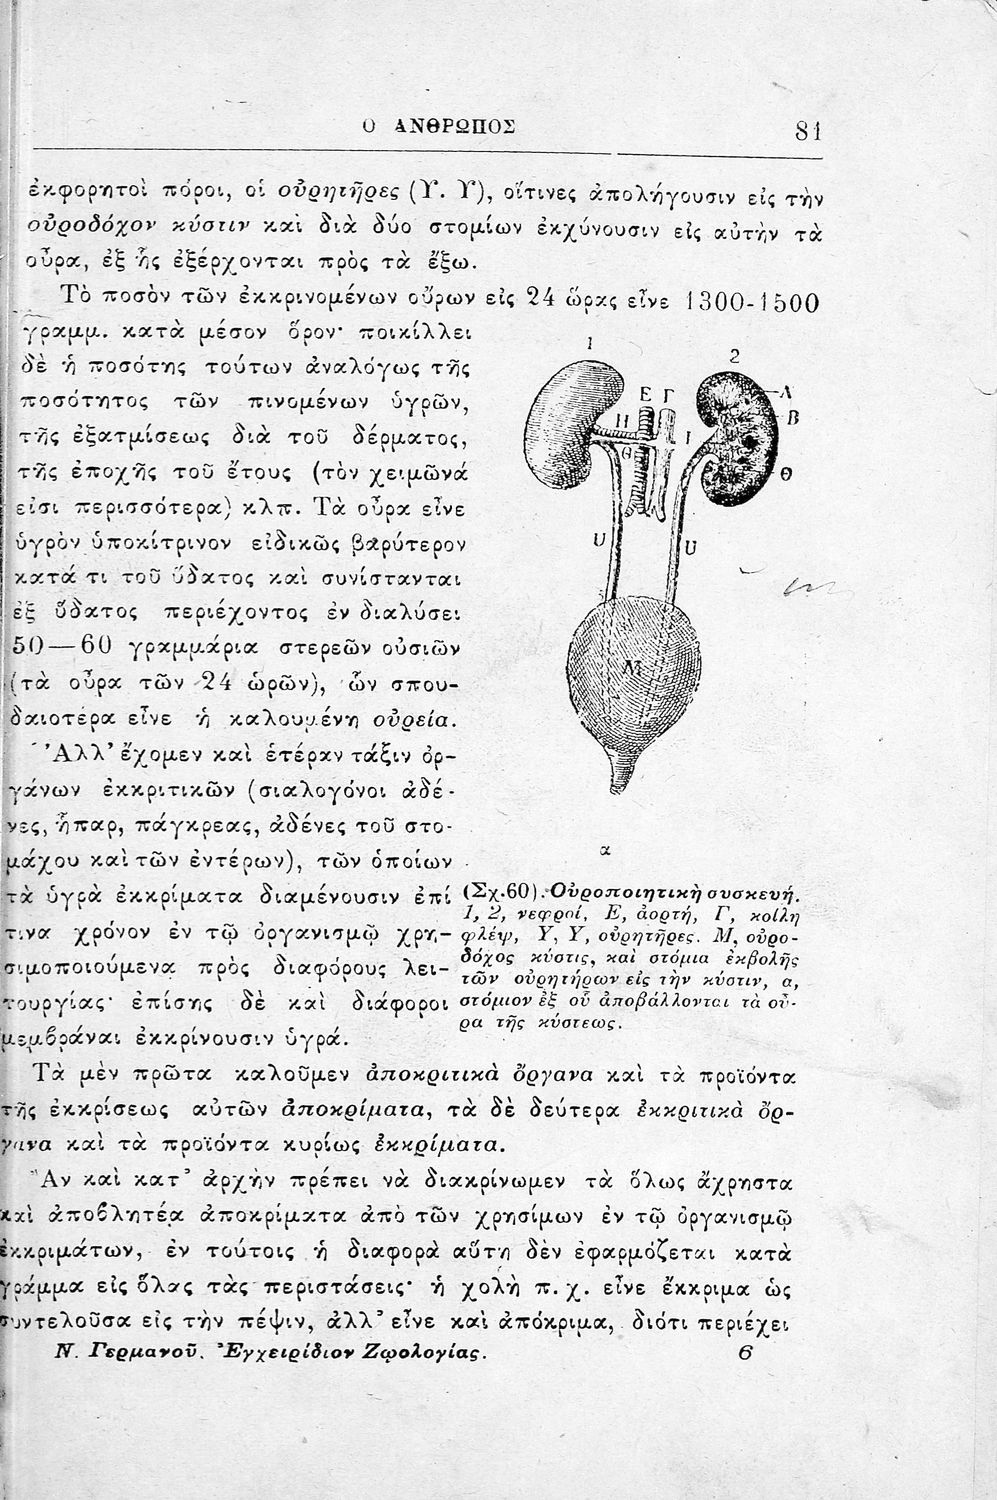 Ο ΑΝΘΡΩΠΟΣ
81
ἐκφορητοὶ πόροι, οἱ οὐρητῆρες (Υ. Υ), οἵτινες ἀπολήγουσιν εἰς τὴν
οὐροδόχον κύστιν καὶ διὰ δύο στομίων ἐκχύνουσιν εἰς αὐτὴν τὰ
οὖρα, ἐξ ἧς ἐξέρχονται πρὸς τὰ ἔξω.
Τὸ ποσὸν τῶν ἐκκρινομένων οὔρων εἰς 24 ὥρας εἶνε 1300-1500
γραμμ. κατὰ μέσον ὅρον· ποικίλλει
δὲ ἡ ποσότης τούτων ἀναλόγως τῆς
ποσότητος τῶν πινομένων ὑγρῶν,
τῆς ἐξατμίσεως διὰ τοῦ δέρματος,
τῆς ἐποχῆς τοῦ ἔτους (τὸν χειμῶνά
εἰσι περισσότερα) κλπ. Τὰ οὖρα εἶνε
ὑγρὸν ὑποκίτρινον εἰδικῶς βαρύτερον
κατά τι τοῦ ὕδατος καὶ συνίστανται
ἐξ ὕδατος περιέχοντος ἐν διαλύσει
50—60 γραμμάρια στερεῶν οὐσιῶν
(τὰ οὖρα τῶν 24 ὡρῶν), ὧν σπου-
δαιοτέρα εἶνε ἡ καλουμένη οὐρεία.
Ἀλλ' ἔχομεν καὶ ἑτέραν τάξιν ὀρ-
γάνων ἐκκριτικῶν (σιαλογόνοι ἀδέ-
νες, ἧπαρ, πάγκρεας, ἀδένες τοῦ στο-
μάχου καὶ τῶν ἐντέρων), τῶν ὁποίων
τὰ ὑγρὰ ἐκκρίματα διαμένουσιν ἐπί
τινα χρόνον ἐν τῷ ὀργανισμῷ χρη-
σιμοποιούμενα πρὸς διαφόρους λει-
τουργίας· ἐπίσης δὲ καὶ διάφοροι
μεμβράναι ἐκκρίνουσιν ὑγρά.
1
2
Ε Γ
Η
Ι
Θ
Λ
Β
Θ
U
U
Μ
α
(Σχ.60). Οὐροποιητικὴ συσκευή.
1, 2, νεφροί, Ε, ἀορτή, Γ, κοίλη
φλέψ, Υ, Υ, οὐρητῆρες. Μ, οὐρο-
δόχος κύστις, καὶ στόμια ἐκβολῆς
τῶν οὐρητήρων εἰς τὴν κύστιν, α,
στόμιον ἐξ οὗ ἀποβάλλονται τὰ οὖ-
ρα τῆς κύστεως.
Τὰ μὲν πρῶτα καλοῦμεν ἀποκριτικὰ ὄργανα καὶ τὰ προϊόντα
τῆς ἐκκρίσεως αὐτῶν ἀποκρίματα, τὰ δὲ δεύτερα ἐκκριτικὰ ὄρ-
γανα καὶ τὰ προϊόντα κυρίως ἐκκρίματα.
Ἂν καὶ κατ' ἀρχὴν πρέπει νὰ διακρίνωμεν τὰ ὅλως ἄχρηστα
καὶ ἀποβλητέα ἀποκρίματα ἀπὸ τῶν χρησίμων ἐν τῷ ὀργανισμῷ
ἐκκριμάτων, ἐν τούτοις ἡ διαφορὰ αὕτη δὲν ἐφαρμόζεται κατὰ
γράμμα εἰς ὅλας τὰς περιστάσεις· ἡ χολὴ π. χ. εἶνε ἔκκριμα ὡς
συντελοῦσα εἰς τὴν πέψιν, ἀλλ' εἶνε καὶ ἀπόκριμα, διότι περιέχει
Ν. Γερμανοῦ. Ἐγχειρίδιον Ζῳολογίας.
6